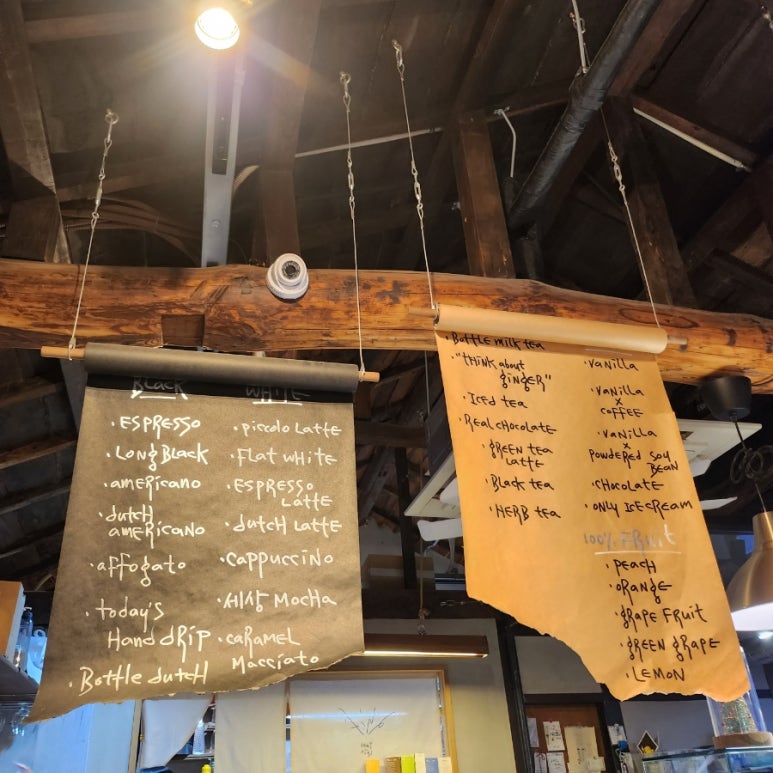 BLACK
• ESPRESSO
• Long Black
• americano
• dutch
americano
• affogato
• today's
Hand drip
• Bottle dutch
WHITE
• piccolo Latte
• FLAT WHITE
• ESPRESSO
Latte
• dutch Latte
• cappuccino
• 시상 MocHa
• caRaMEL
Macciato
• Bottle milk tea
• "think about
ginger"
• Iced tea
• Real chocolate
• green tea
latte
• Black tea
• HERB tea
• vanilla
• vanilla
x
coffee
• vanilla
x
powdered soy
bean
• chocolate
• only icecream
100% FRuit
• peach
• orange
• grape fruit
• green grape
• LEMON